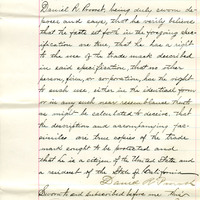 Daniel R. Prowt, being duly sworn de-
poses and says, that he verily believes
that the facts set forth in the foregoing spec-
ification are true, that he has a right
to the use of the trade mark described
in said specification, that no other
person, firm, or corporation, has the right
to such use either in the identical form
or in any such near resemblance that
as might be calculated to deceive, that
the description and accompanying fac-
similes are true copies of the trade
mark sought to be protected and
that he is a citizen of the United States and
a resident of the State of California
Daniel R.
Sworn to and subscribed before me this